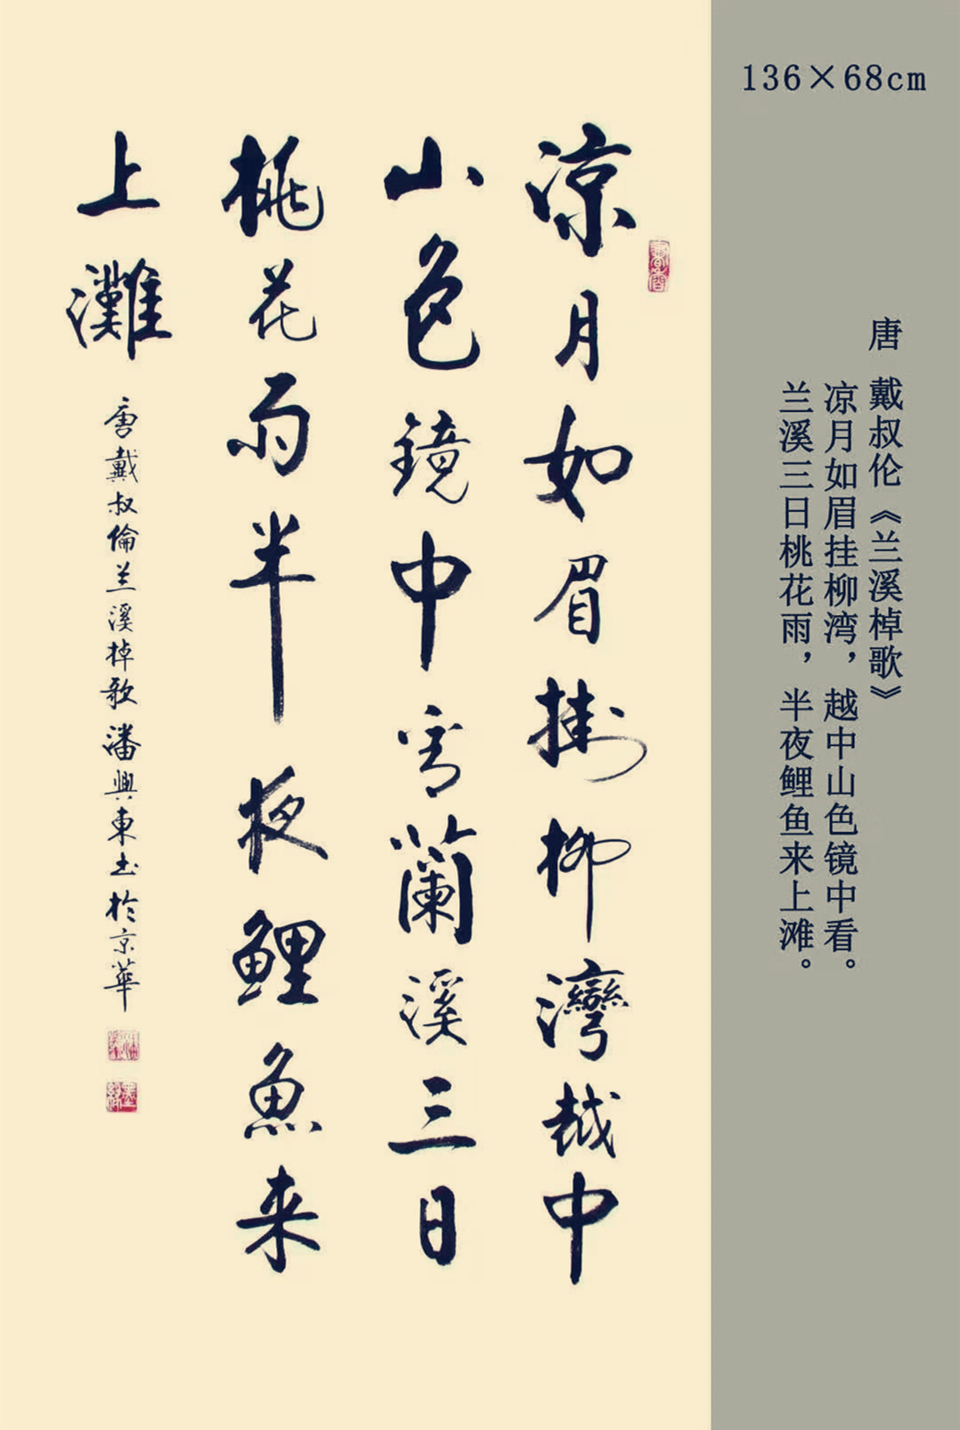 136×68cm
唐 戴叔伦《兰溪棹歌》
凉月如眉挂柳湾，越中山色镜中看。
兰溪三日桃花雨，半夜鲤鱼来上滩。
凉月如眉掛柳灣越中
山色鏡中看蘭溪三日
桃花雨半夜鲤魚来
上灘
唐戴叔倫兰溪棹歌潘興東书於京華